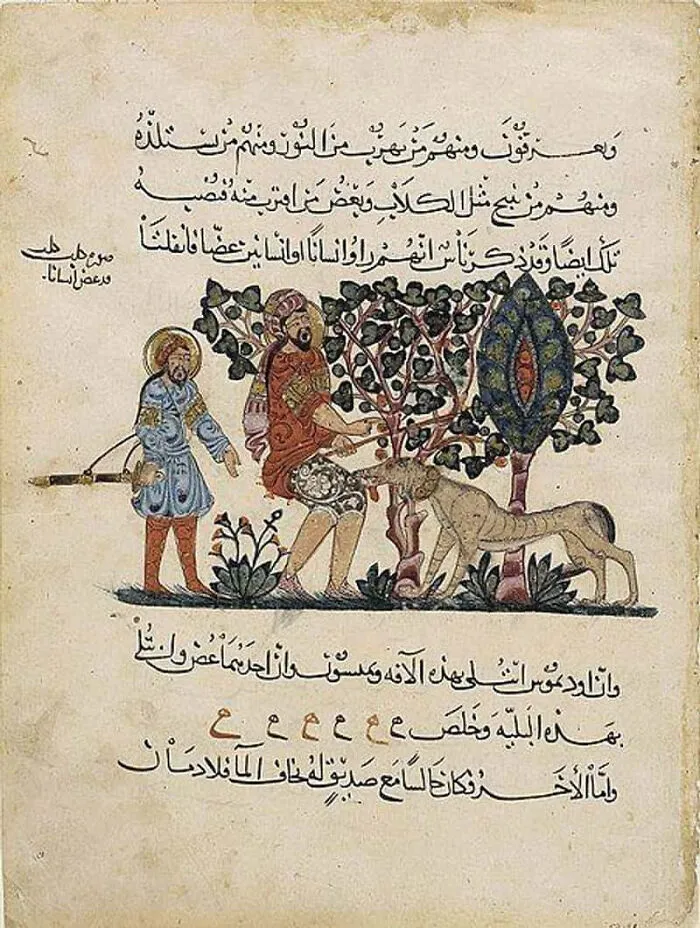 ويعرقون ومنهم من يهرب من النور ومنهم من يستلذه
ومنهم من ينبح مثل الكلاب وبعض من اقترب منه
تلك ايضًا وقد ذكر ناس انهم راوا انسانًا او انسانين عضّا فانفلتا
صورة كلب كلب
قد عض انسانا
وان اوديموس ابتلى بهذه الآفه وثميسون وان احدهما عض
بهذه البليه وخلص
وامّا الأخر فكان جالسا مع صديق له يخاف الما